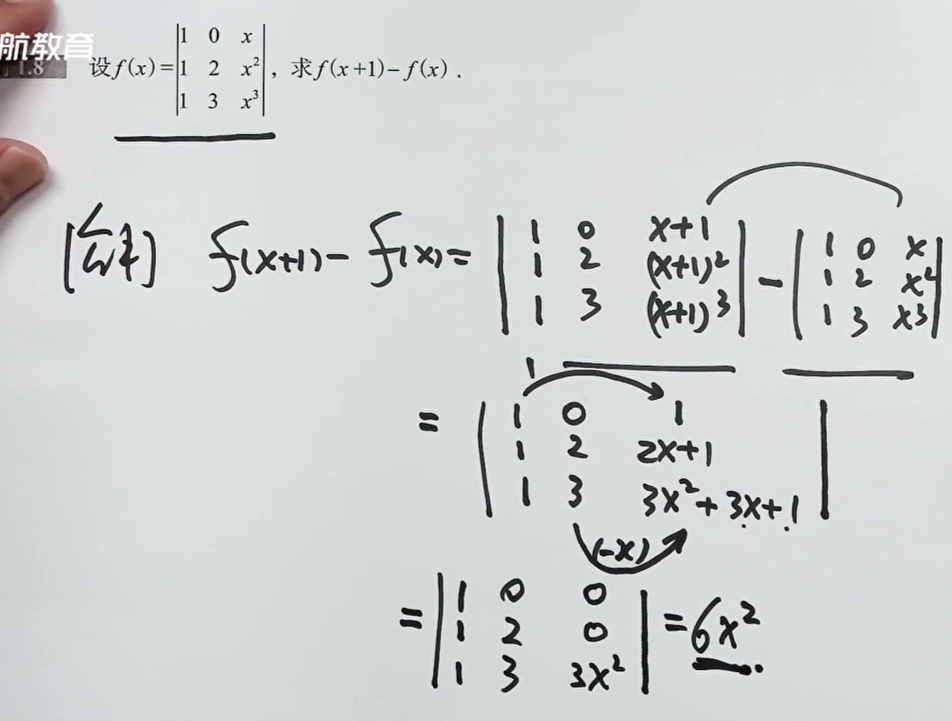 航教育
1.8 设f(x)=|1 0 x; 1 2 x²; 1 3 x³|, 求f(x+1)-f(x).
[解] f(x+1)-f(x)=|1 0 x+1; 1 2 (x+1)²; 1 3 (x+1)³|-|1 0 x; 1 2 x²; 1 3 x³|
1
=|1 0 1; 1 2 2x+1; 1 3 3x²+3x+1|
(-x)
=|1 0 0; 1 2 0; 1 3 3x²|=6x².